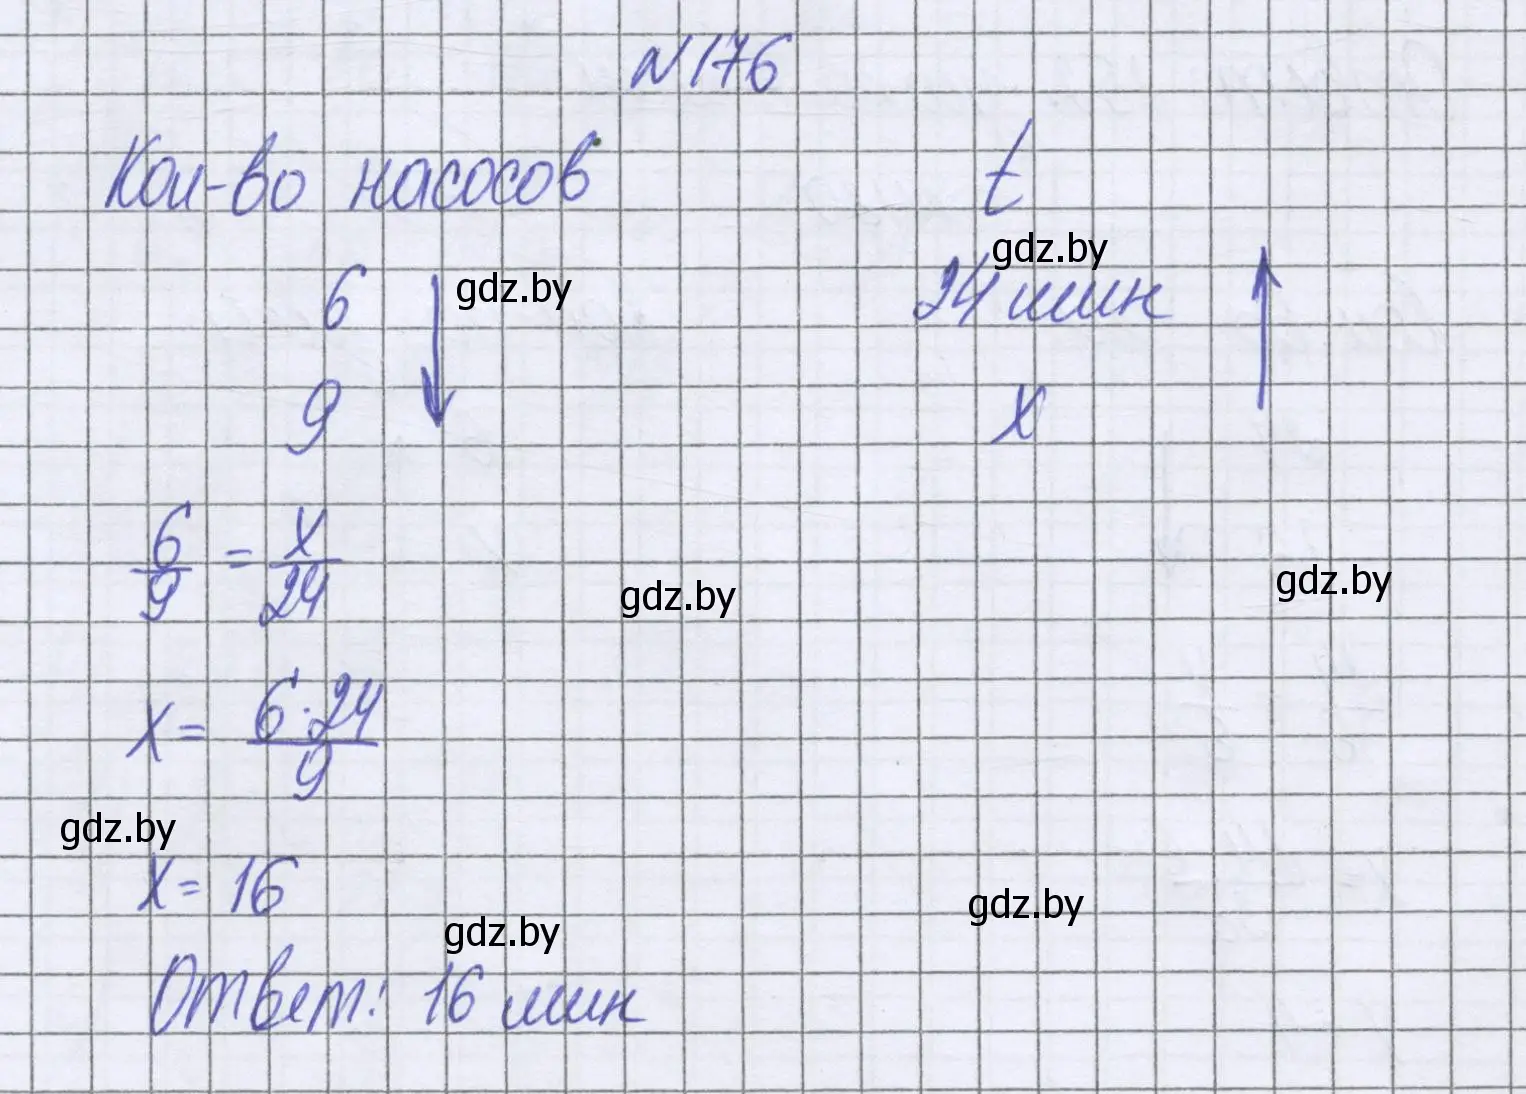 №176
Кол-во насосов t
gdz.by
6 gdz.by 24 мин
9 x
6/9 = x/24
gdz.by gdz.by
x = 6·24/9
gdz.by
x = 16
gdz.by gdz.by
Ответ: 16 мин